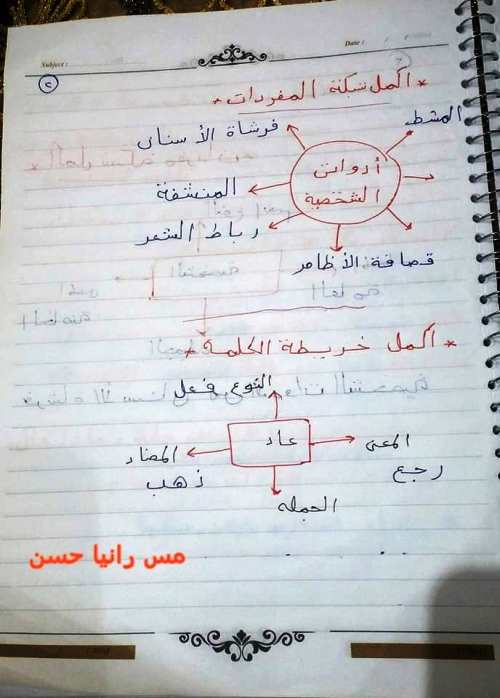 Subject :
Date :
٢
* أكمل شبكة المفردات *
المشط
فرشاة الأسنان
أدوات
الشخصية
المنشفة
رباط الشعر
قصافة الأظافر
* أكمل خريطة الكلمة *
النوع فعل
عاد
المعنى
رجع
المضاد
ذهب
الجملة
مس رانيا حسن